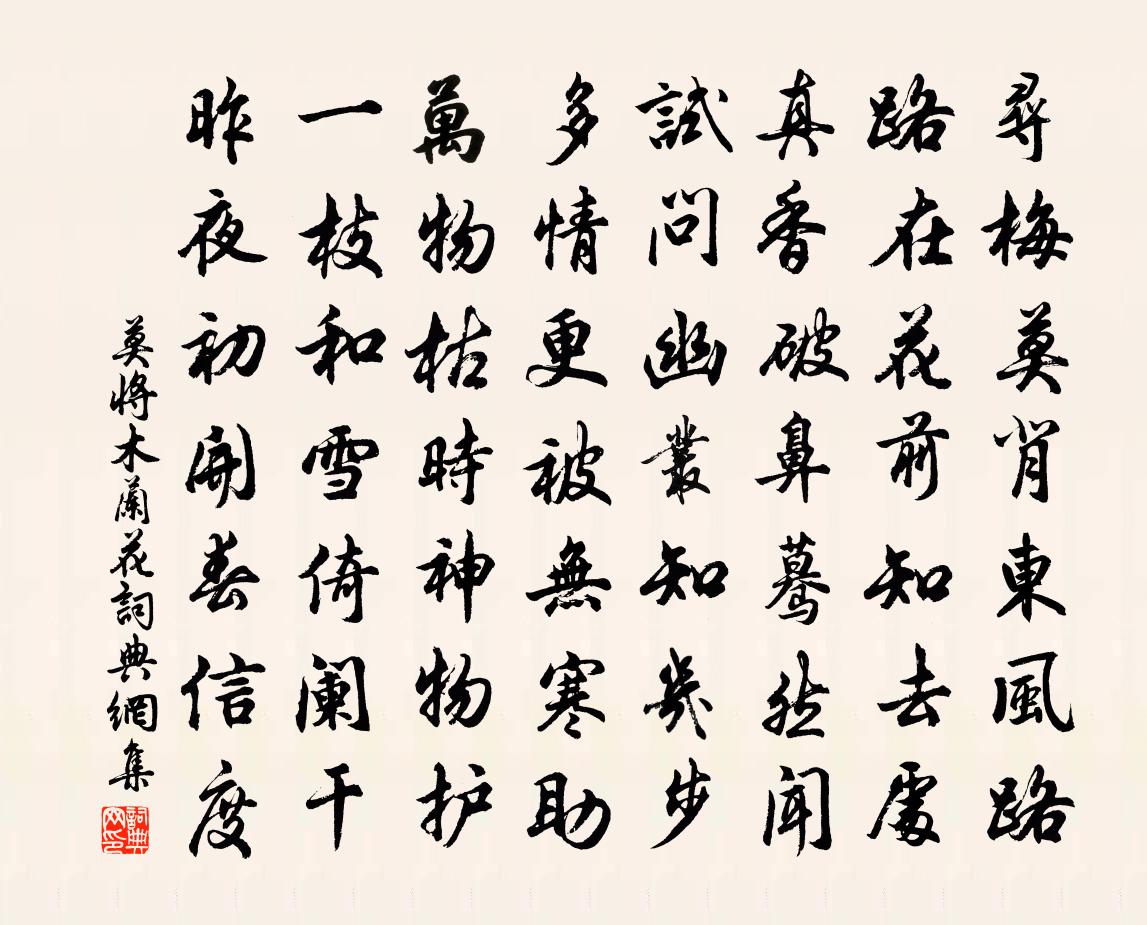 尋梅莫肯東風路
路在花前知去處
真香破鼻驀然聞
試問幽叢知幾步
多情更被無寒助
萬物枯時神物护
一枝和雪倚阑干
昨夜初開春信度
莫將木蘭花詞典網集
詞典網印